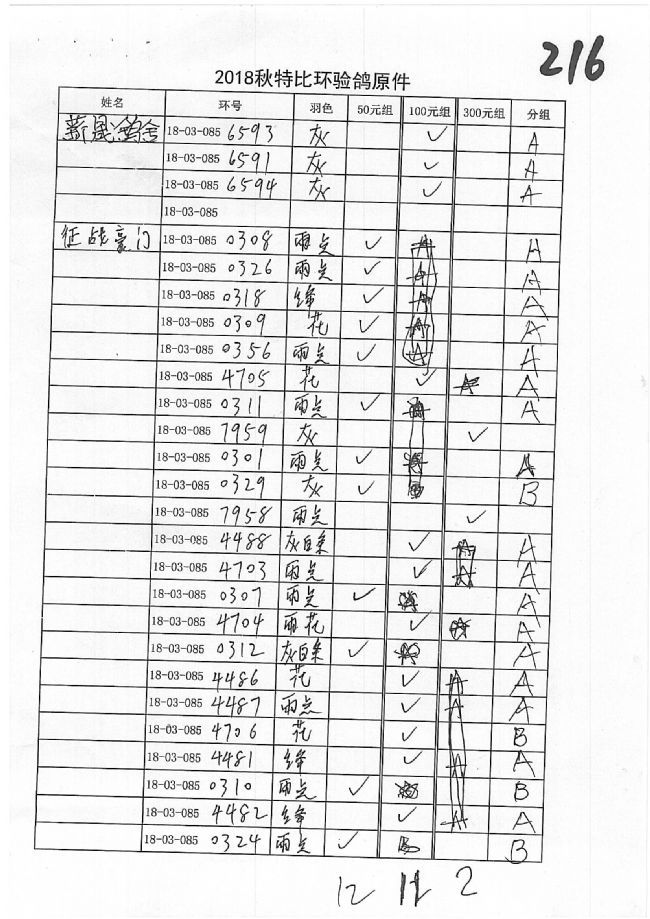 216
2018秋特比环验鸽原件
姓名 环号 羽色 50元组 100元组 300元组 分组
薪晟鸽舍 18-03-085 6593 灰 ✓ A
18-03-085 6591 灰 ✓ A
18-03-085 6594 灰 ✓ A
18-03-085
征战豪门 18-03-085 0308 雨点 ✓ A
18-03-085 0326 雨点 ✓ A
18-03-085 0318 绛 ✓ A
18-03-085 0309 花 ✓ A
18-03-085 0356 雨点 ✓ A
18-03-085 4705 花 ✓ A
18-03-085 0311 雨点 ✓ A
18-03-085 7959 灰 ✓
18-03-085 0301 雨点 ✓ A
18-03-085 0329 灰 ✓ B
18-03-085 7958 雨点 ✓
18-03-085 4488 灰白条 ✓ A
18-03-085 4703 雨点 ✓ A
18-03-085 0307 雨点 ✓ A
18-03-085 4704 雨花 ✓ A
18-03-085 0312 灰白条 ✓ A
18-03-085 4486 花 ✓ A
18-03-085 4487 雨点 ✓ A
18-03-085 4706 花 ✓ B
18-03-085 4481 绛 ✓ A
18-03-085 0310 雨点 ✓ B
18-03-085 4482 绛 ✓ A
18-03-085 0324 雨点 ✓ B
12 11 2